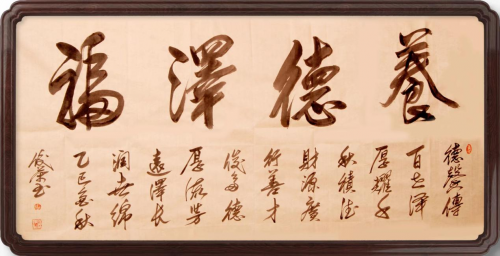 養德澤福
德馨傳
百世澤
厚耀千
秋積德
財源廣
行善才
俊多德
厚流芳
遠澤長
潤世綿
乙巳金秋